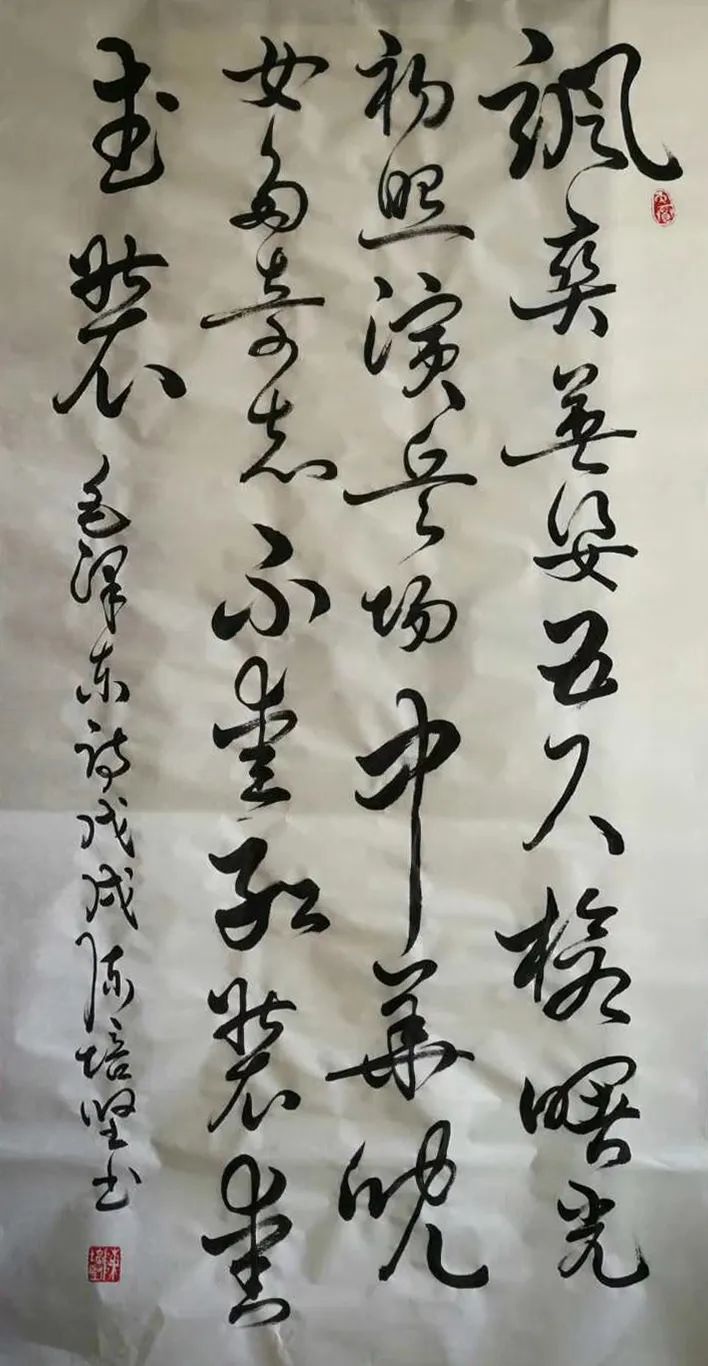 飒爽英姿五尺枪曙光
初照演兵场中华儿
女多奇志不爱红装爱
武装
毛泽东诗戊戌陈培坚书